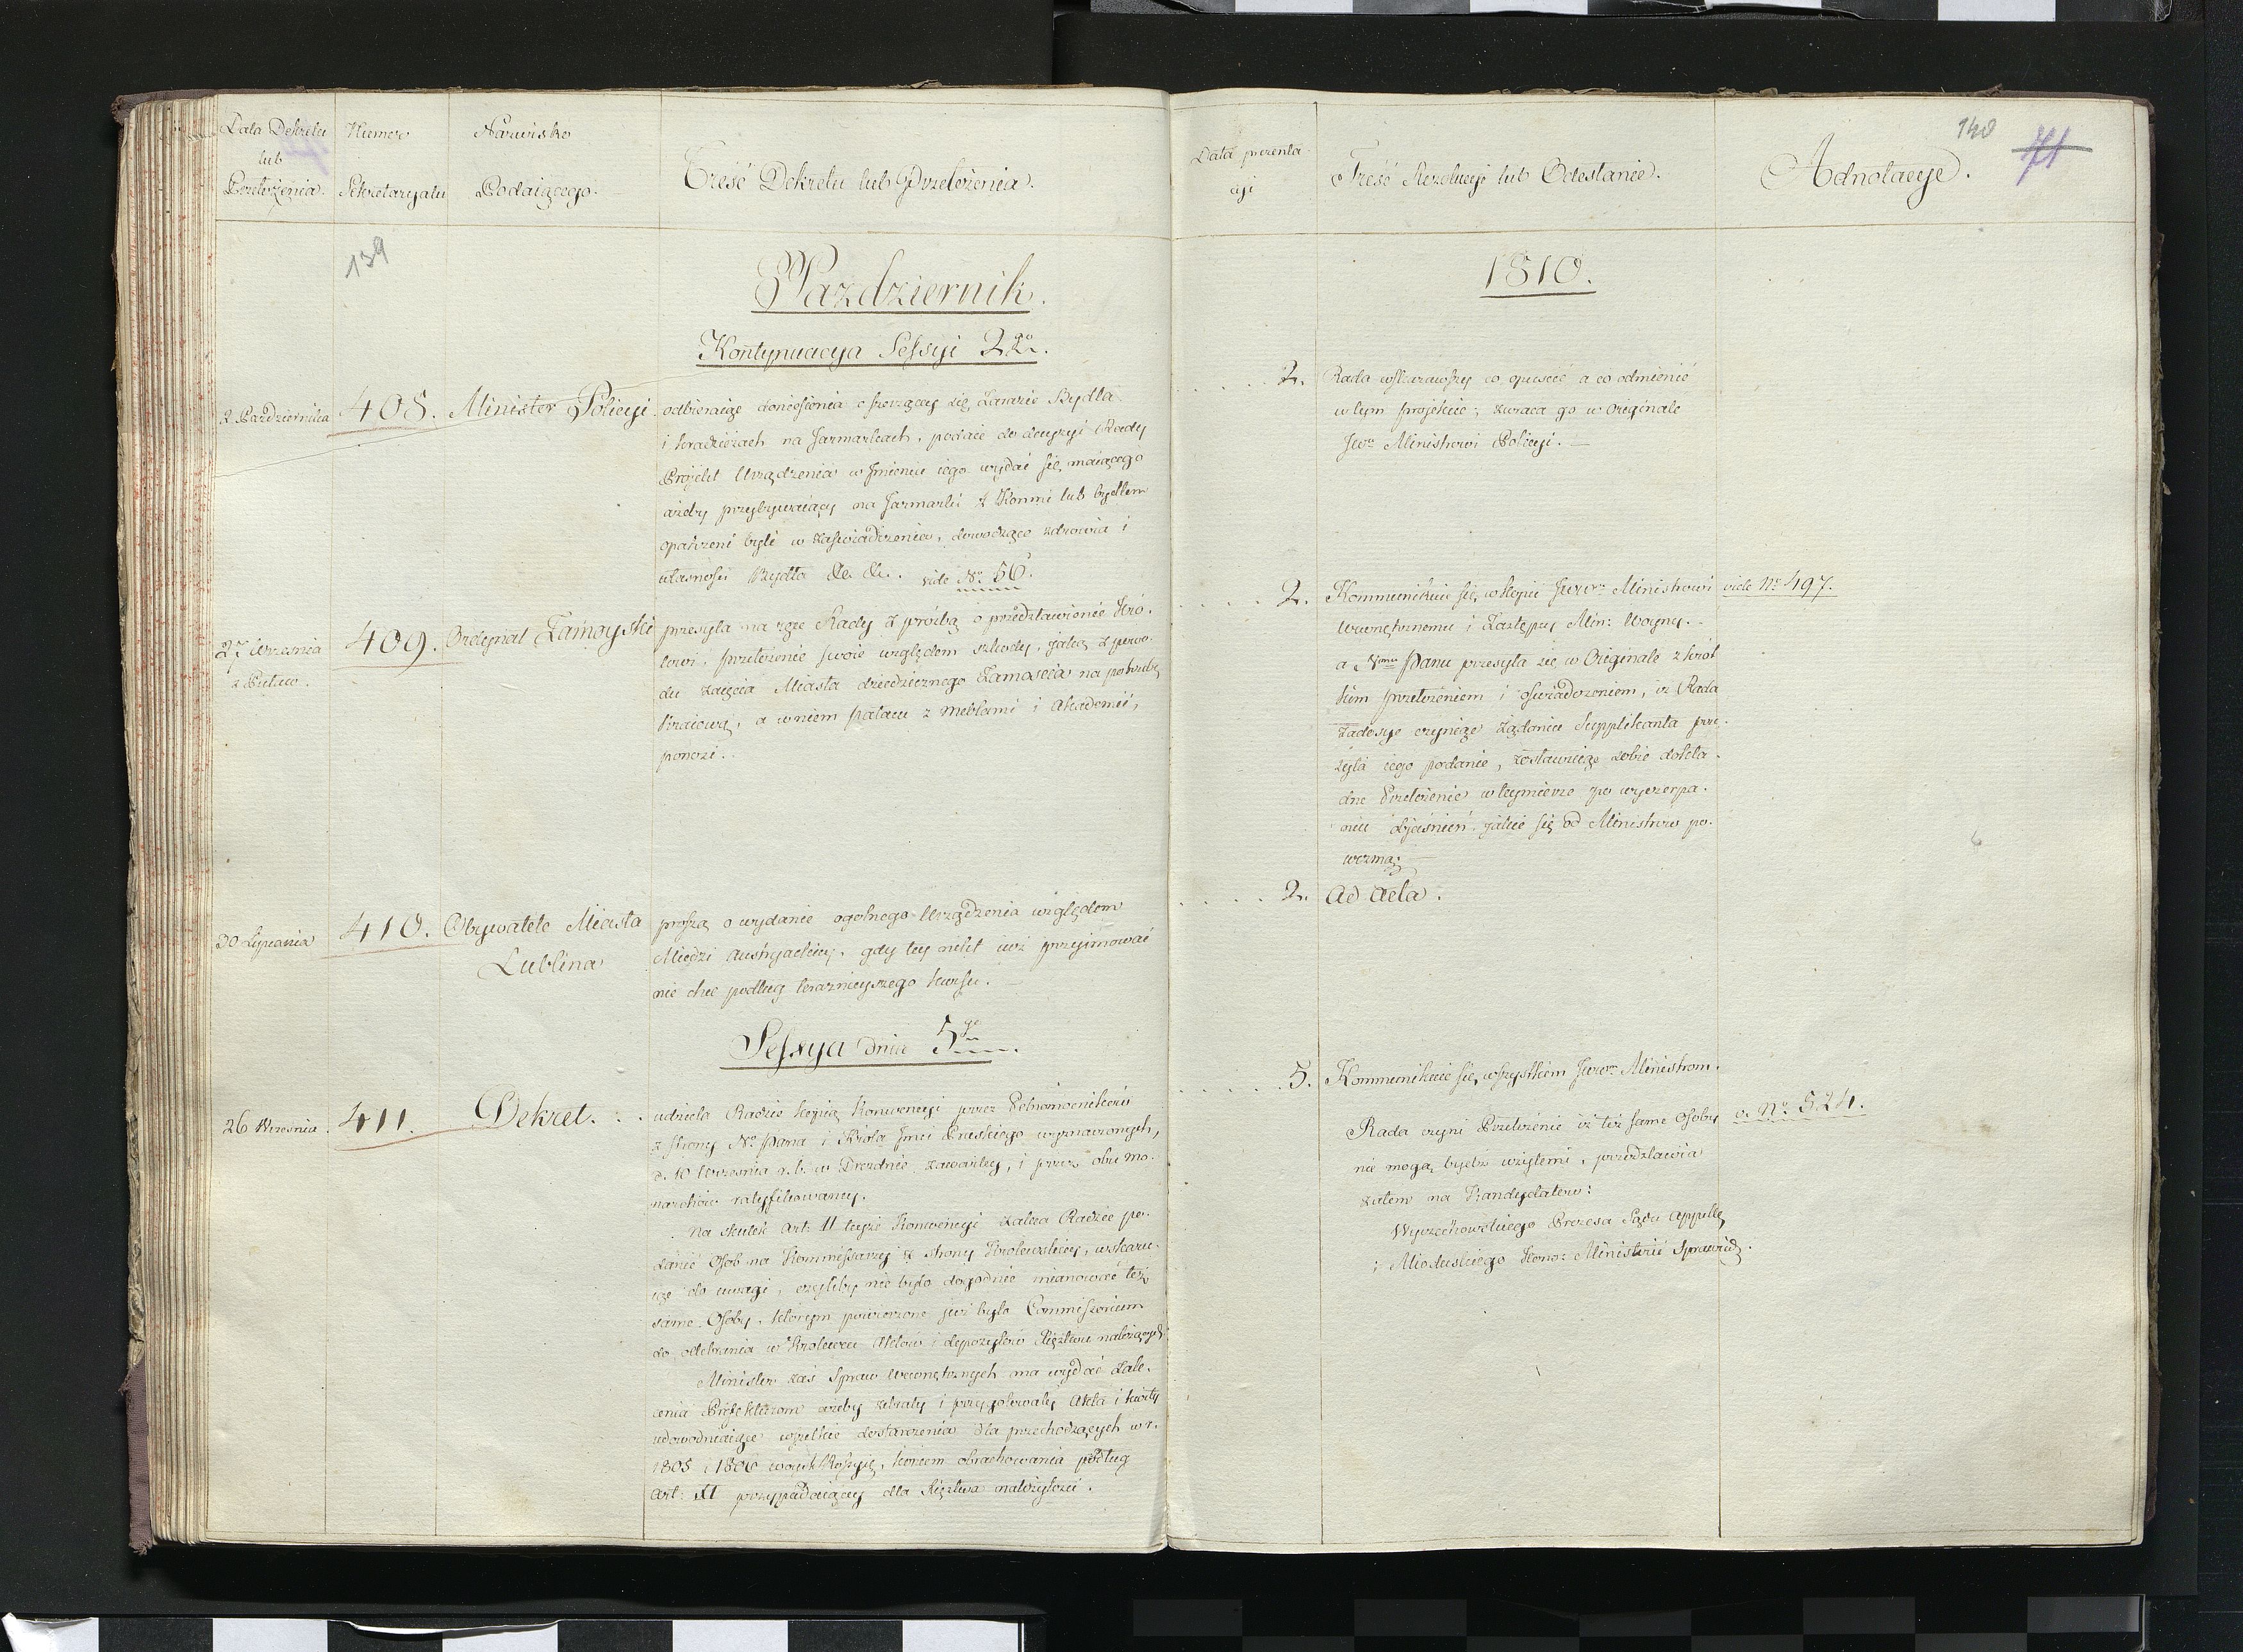 Data Dekretu
lub
Przełożenia.
Numero
Sekretaryatu
Nazwisko
Podaiącego.
Treść Dekretu lub Przełożenia.
139
Pazdziernik.
Kontynuacya Sessyi 2go.
2 Października
408.
Minister Policyi.
odbieraiąc doniesienia o szerzącey się Zarazie Bydła
i kradzieżach na Jarmarkach, podaie do decyzyi Rady
Projekt Urządzenia w Imieniu iego wydać się maiącego
ażeby przybywaiący na Jarmarki z Konmi lub bydłem
opatrzeni byli w zaświadczenia, dowodzące zdrowia i
własności Bydła &c. &c. vide No. 56.
27 Września
z Puław.
409.
Ordynat Zamoyski
przesyła na ręce Rady z proźbą o przedstawienie Kró-
lowi, przełożenie swoie względem szkody, jaką z powo-
du zaięcia Miasta dziedzicznego Zamościa na potrzebę
kraiową, a w niem pałacu z meblami i Akademii,
ponosi.
30 Sierpnia
410.
Obywatele Miasta
Lublina
proszą o wydanie ogolnego Urządzenia względem
Miedzi Austryackiey, gdy tey nikt iuż przyimować
nie chce podług teraznieyszego kursu.
Sessya dnia 5go
26 Września.
411.
Dekret.
udziela Radzie kopią Konwencyi przez Pełnomocników
z strony No Pana i Króla Jmci Pruskiego wyznaczonych,
d. 10 Września r. b. w Dreznie zawartey, i przez obu Mo-
narchów ratyfikowaney.
Na skutek Art: II teyże Konwencyi zaleca Radzie po-
danie Osob na Kommissarzy z strony Krolewskiey, wskazu-
iąc do uwagi, czyliby nie było dogodnie mianować też
same Osoby, którym powierzone już było Commissorium
do odebrania w Krolewcu Aktow i depozytow Xięztwu należących
Minister zaś Spraw Wewnętrznych ma wydać zale-
cenia Prefektżrom ażeby zebrały i przygotowały Akta i kwity
udowodniaiące wszelkie dostarczenia dla przechodzących w r.
1805 i 1806 woysk Rossyis. koncem obrachowania podług
Art: XI przypadaiącey dla Xięztwa należytości.
Data prezenta-
cyi
Treść Rezolucyi lub Odesłanie.
Adnotacye.
140
71
1810.
2.
Rada wskazawszy co opuścić a co odmienić
w tym projekcie; zwraca go w Originale
Jwu Ministrowi Policyi. —
2.
Kommunikuie się w kopii Jwwm Ministrowi
Wewnętrznemu i Zastępcy Min: Woyny. -
a Nmu Panu przesyła się w Originale z krót-
kim przełożeniem i oświadczeniem, iż Rada
zadosyć czyniąc żądaniu Supplikanta prze-
syła iego podanie, zostawuiąc sobie dokła-
dne Przełożenie w teymierze po wyczerpa-
niu objaśnień jakie się od Ministrów po-
wezmą; —
vide No 497.
2.
Ad Acta.
5.
Kommunikuie się wszystkim Jwwm Ministrom.
Rada czyni Przełożenie iż też same Osoby
nie mogą bydź użytemi, przedstawia
zatem na Kandydatow:
Wyczechowskiego Prezesa Sądu Appell:
i Mioduskiego Kons: Ministrii Sprawied.
v. No. 524.